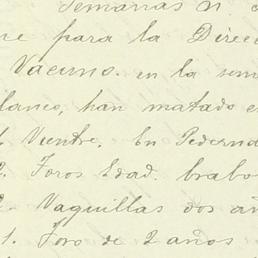 Semanas n
para la Direc
Vacuno. en la sem
blanco, han matado e
1. Vientre. En Pedernd
2. Toros Edad. brabo
2. Vaquillas dos añ
1. Toro de 2 años